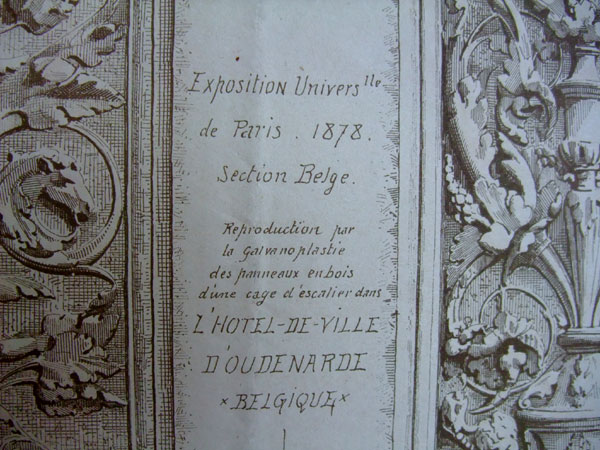 Exposition Univers^lle
de Paris . 1878.
Section Belge.
Reproduction par
la Galvanoplastie
des panneaux en bois
d'une cage d'escalier dans
L'HOTEL-DE-VILLE
D'OUDENARDE
×BELGIQUE×